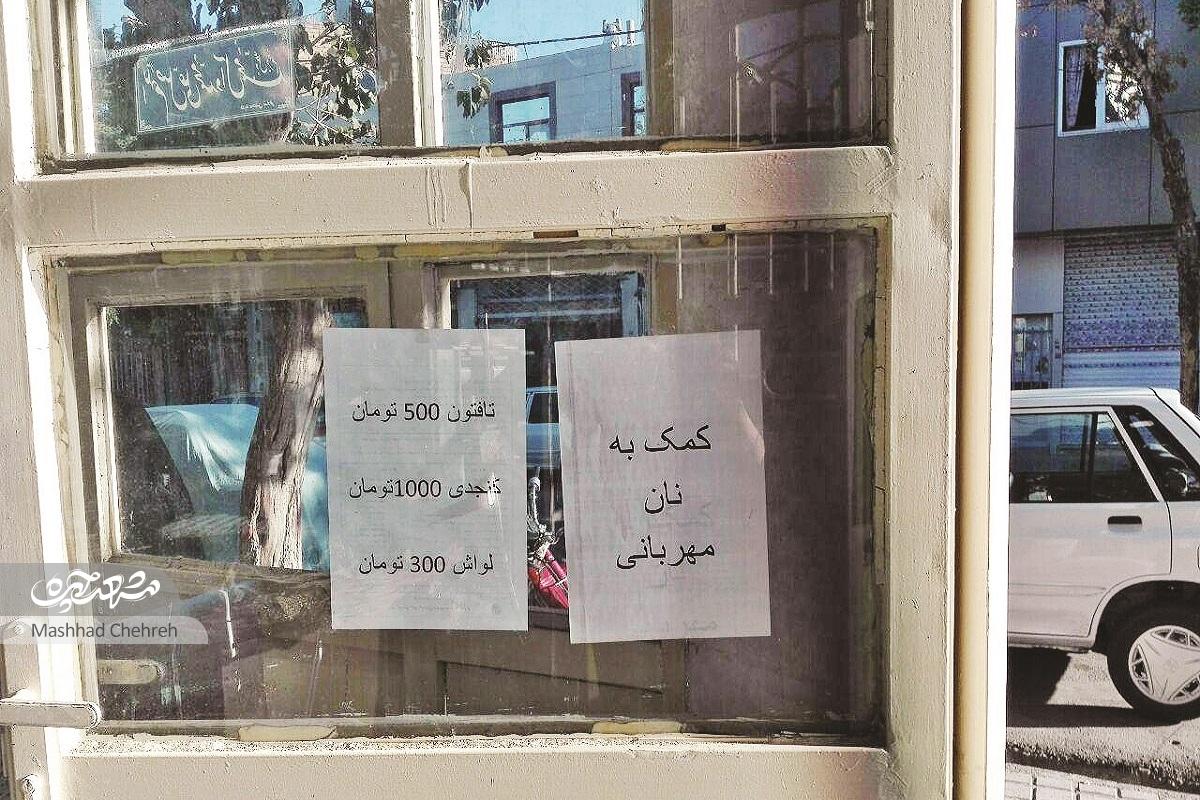 تافتون 500 تومان
کنجدی 1000تومان
لواش 300 تومان
کمک به
نان
مهربانی
مشهد چهره
Mashhad Chehreh